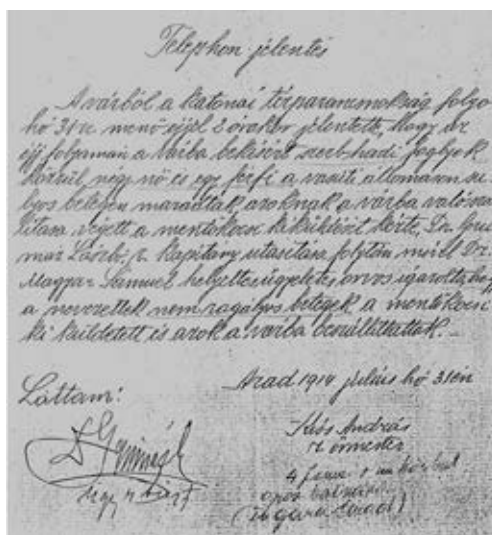 Telephon jelentés
A várból a katonai térparancsnokság folyó
hó 31re menő éjjel 2 órakor jelentette, hogy az
éjj folyamán a várba bekísért szerb hadi foglyok
közzül, négy nő és egy férfi a vasúti állomáson su-
lyos betegen maradtak, azoknak a várba való szál-
litása végett a mentőkocsi kiküldését kérte, Dr. Gru
már László r. kapitány utasítása folytán mivel Dr.
Magyar Sámuel helyettes ügyeletes orvos igazolta, hogy
a nevezettek nem ragályos betegek a mentőkocsi
ki küldetett és azok a várba beszállíttattak.
Láttam:
Arad 1914 július hó 31én
Kiss András
r. őrmester
4